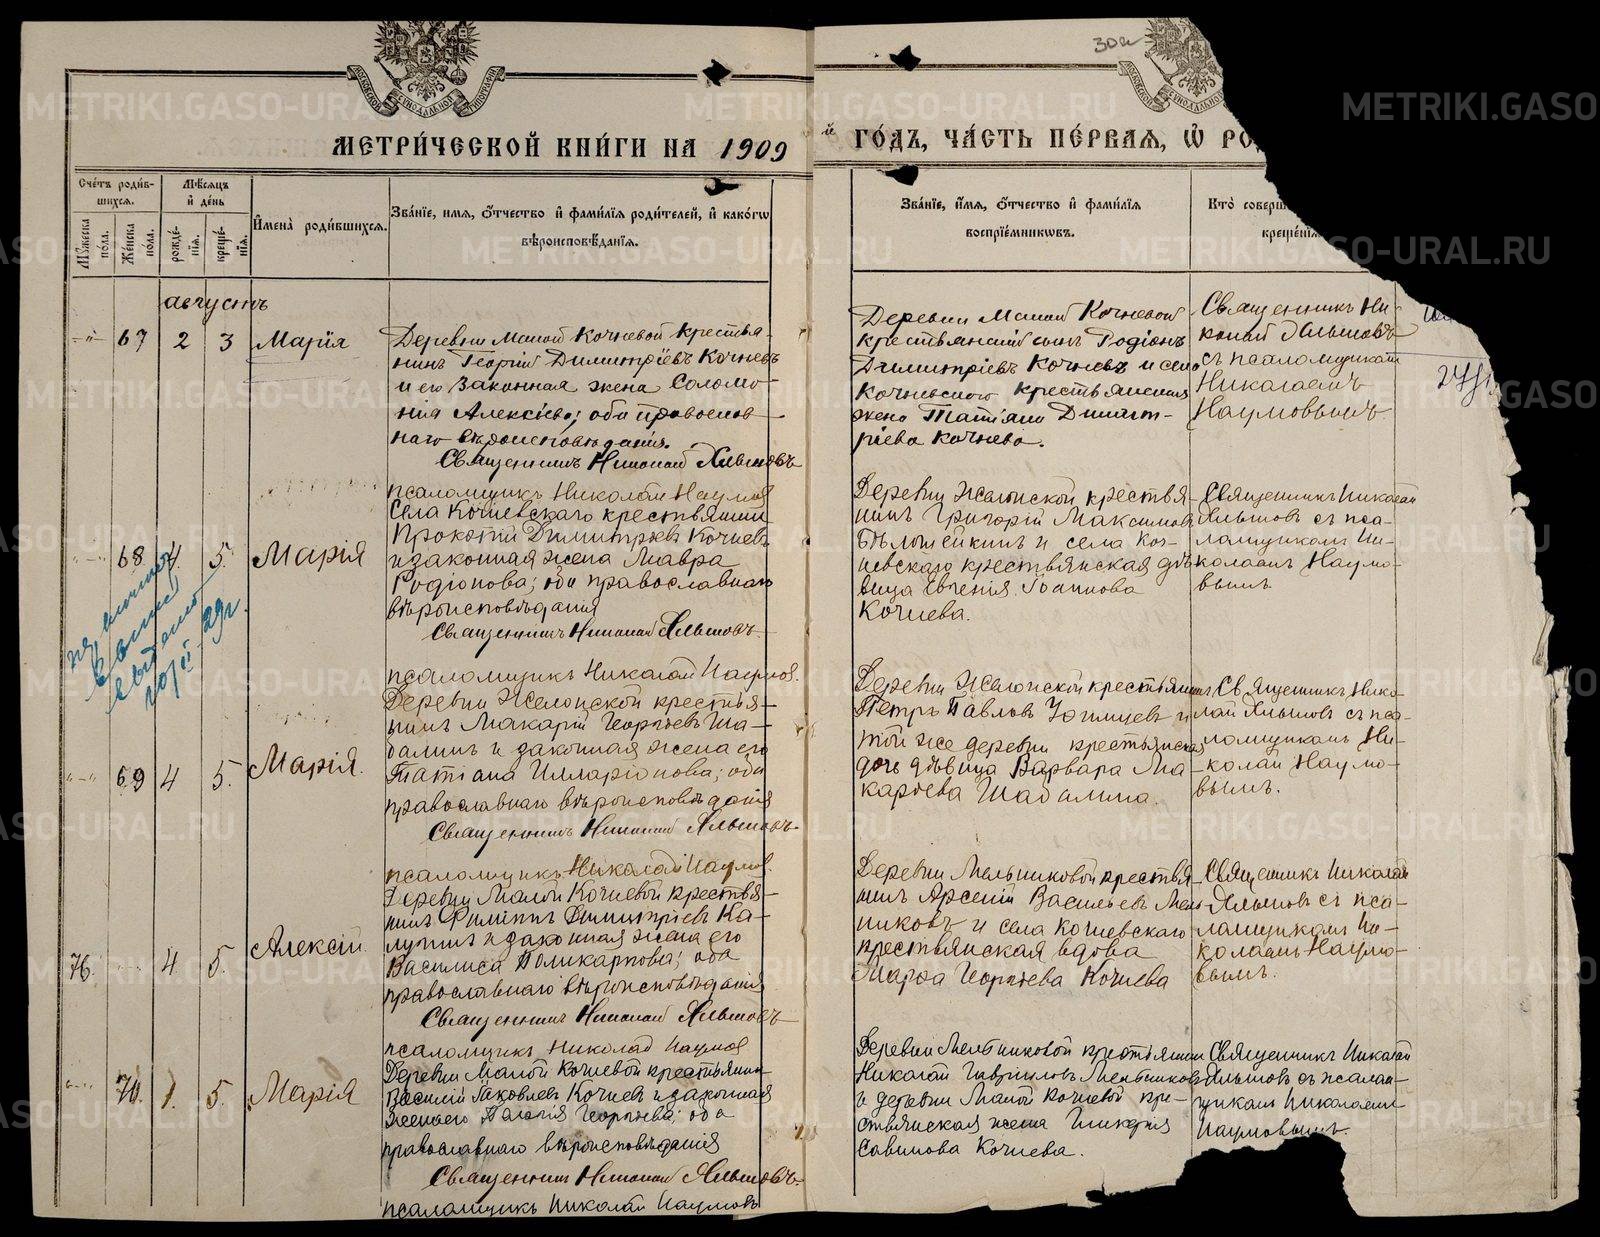 30
МОСКОВСКОЙ СѴНОДАЛЬНОЙ ТИПОГРАФІИ
МОСКОВСКОЙ СѴНОДАЛЬНОЙ
МЕТРИ́ЧЕСКОЙ КНИ́ГИ НА 1909 й ГО́ДЪ, ЧА́СТЬ ПЕ́РВАЯ, Ѡ РО
Сче́тъ роди́в-
шихся.
Мѣ́сяцъ
и де́нь
Му́жеска по́ла.
Же́нска по́ла.
рожде́-
нїя.
креще́-
нїя.
И҆мена̀ роди́вшихся.
Зва́нїе, имя, Ѻ҆́тчество и҆ фами́лїя роди́телей, и҆ како́гѡ
вѣроисповѣ́данїя.
Зва́нїе, и҆́мя, ѻ҆́тчество и҆ фами́лїя
воспрїе́мникѡвъ.
Кто̀ соверш
креще́нїя
августъ
67 2 3 Марія
Деревни Малой Кочневой крестья-
нинъ Георгій Димитріевъ Кочневъ
и его законная жена Соломо-
нія Алексіева; оба православ-
наго вѣроисповѣданія.
Священникъ Николай Яльшовъ
псаломщикъ Николай Наумов
Деревни Малой Кочневой
крестьянскій сынъ Родіонъ
Димитріевъ Кочневъ и села
Кочневского крестьянская
жена Татіана Димит-
ріева Кочнева.
Священникъ Ни-
колай Яльшовъ
съ псаломщикомъ
Николаемъ
Наумовымъ
68 4 5 Марія
Села Кочневскаго крестьянинъ
Прокопій Димитріевъ Кочневъ
и законная жена Мавра
Родіонова; оба православнаго
вѣроисповѣданія
Священникъ Николай Яльшовъ
псаломщикъ Николай Наумов.
Деревни Жилонской крестья-
нинъ Григорій Максимов
и села Коч-
невскаго крестьянская дѣ-
вица Евгенія Іоаннова
Кочнева.
Священникъ Николай
Яльшовъ съ пса-
ломщикомъ Ни-
колаемъ Наумо-
вымъ
69 4 5. Марія.
Деревни Жилонской крестья-
нинъ Макарій Георгіевъ Ша-
балинъ и законная жена его
Татіана Илларіонова; оба
православнаго вѣроисповѣданія
Священникъ Николай Яльшовъ
псаломщикъ Николай Наумов.
Деревни Жилонской крестьянинъ
Петръ Павловъ и
той же деревни крестьянская
дочь дѣвица Варвара Ма-
каріева Шабалина.
Священникъ Нико-
лай Яльшовъ съ пса-
ломщикомъ Ни-
колай Наумо-
вымъ.
76. 4 5. Алексій.
Деревни Малой Кочневой крестья-
нинъ Филиппъ Димитріевъ Ка-
лугинъ и законная жена его
Василиса Поликарпова; оба
православнаго вѣроисповѣданія
Священникъ Николай Яльшовъ
псаломщикъ Николай Наумов
Деревни Мельниковой крестья-
нинъ Арсеній Васильевъ Мель-
никовъ и села Кочневскаго
крестьянская вдова
Марѳа Георгіева Кочнева
Священникъ Николай
Яльшовъ съ пса-
ломщикомъ Ни-
колаемъ Наумо-
вымъ.
70. 1. 5. Марія
Деревни Малой Кочневой крестьянин
Василій Іаковлевъ Кочневъ и законная
жена его Пелагія Георгіева; оба
православнаго вѣроисповѣданія
Священникъ Николай Яльшовъ.
псаломщикъ Николай Наумовъ
Деревни Мельниковой крестьянин
Николай Гавриловъ Мельников
и деревни Малой Кочневой кре-
стьянская жена Гликерія
Савинова Кочнева.
Священникъ Николай
Яльшовъ съ псалом-
щикомъ Николаемъ
Наумовымъ.
METRIKI.GASO-URAL.RU